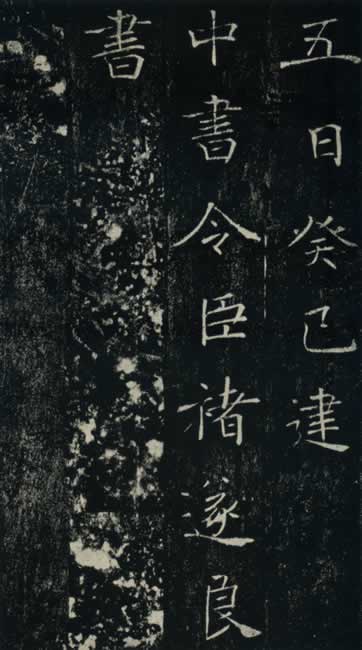 五日癸巳建
中書令臣褚遂良
書